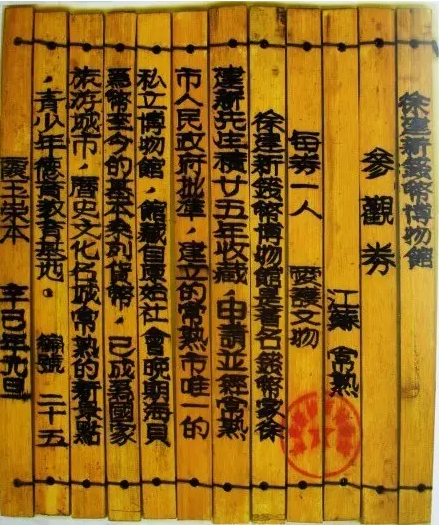 徐建新錢幣博物館
參觀券
江蘇 常熟
每券一人 愛護文物
徐建新錢幣博物館是著名錢幣家徐
建新先生積廿五年收藏，申請並經常熟
市人民政府批準，建立的常熟市唯一的
私立博物館，館藏自原始社會晚期海貝
爲幣至今的基本系列貨幣，已成爲國家
旅游城市，曆史文化名城常熟的新景點
，青少年德育教育基地。 編號 二十五
辛巳年元旦